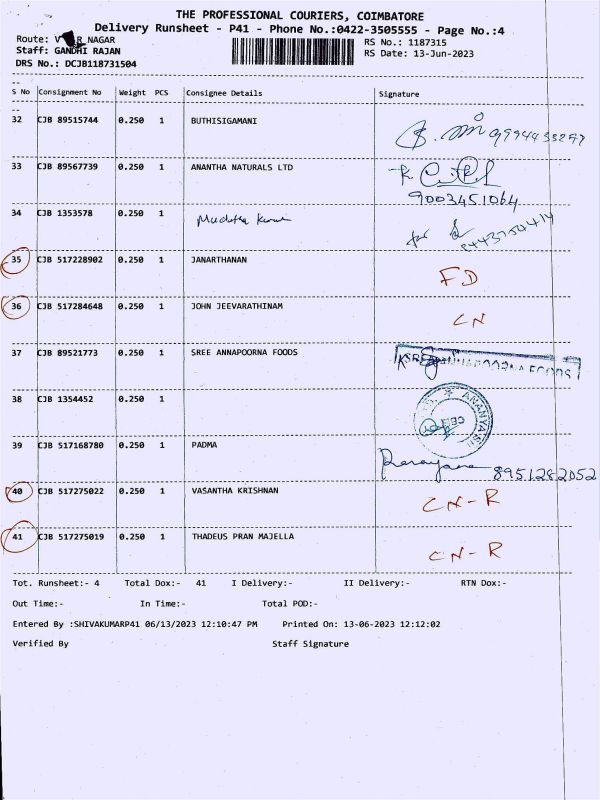 THE PROFESSIONAL COURIERS, COIMBATORE
Delivery Runsheet - P41 - Phone No.:0422-3505555 - Page No.:4
Route: V R NAGAR RS No.: 1187315
Staff: GANDHI RAJAN RS Date: 13-Jun-2023
DRS No.: DCJB118731504
S No Consignment No Weight PCS Consignee Details Signature
32 CJB 89515744 0.250 1 BUTHISIGAMANI
33 CJB 89567739 0.250 1 ANANTHA NATURALS LTD
9003451064
34 CJB 1353578 0.250 1
35 CJB 517228902 0.250 1 JANARTHANAN FD
36 CJB 517284648 0.250 1 JOHN JEEVARATHINAM CN
37 CJB 89521773 0.250 1 SREE ANNAPOORNA FOODS
38 CJB 1354452 0.250 1
39 CJB 517168780 0.250 1 PADMA
Narayana 8951282052
40 CJB 517275022 0.250 1 VASANTHA KRISHNAN CN-R
41 CJB 517275019 0.250 1 THADEUS PRAN MAJELLA CN-R
Tot. Runsheet:- 4 Total Dox:- 41 I Delivery:- II Delivery:- RTN Dox:-
Out Time:- In Time:- Total POD:-
Entered By :SHIVAKUMARP41 06/13/2023 12:10:47 PM Printed On: 13-06-2023 12:12:02
Verified By Staff Signature